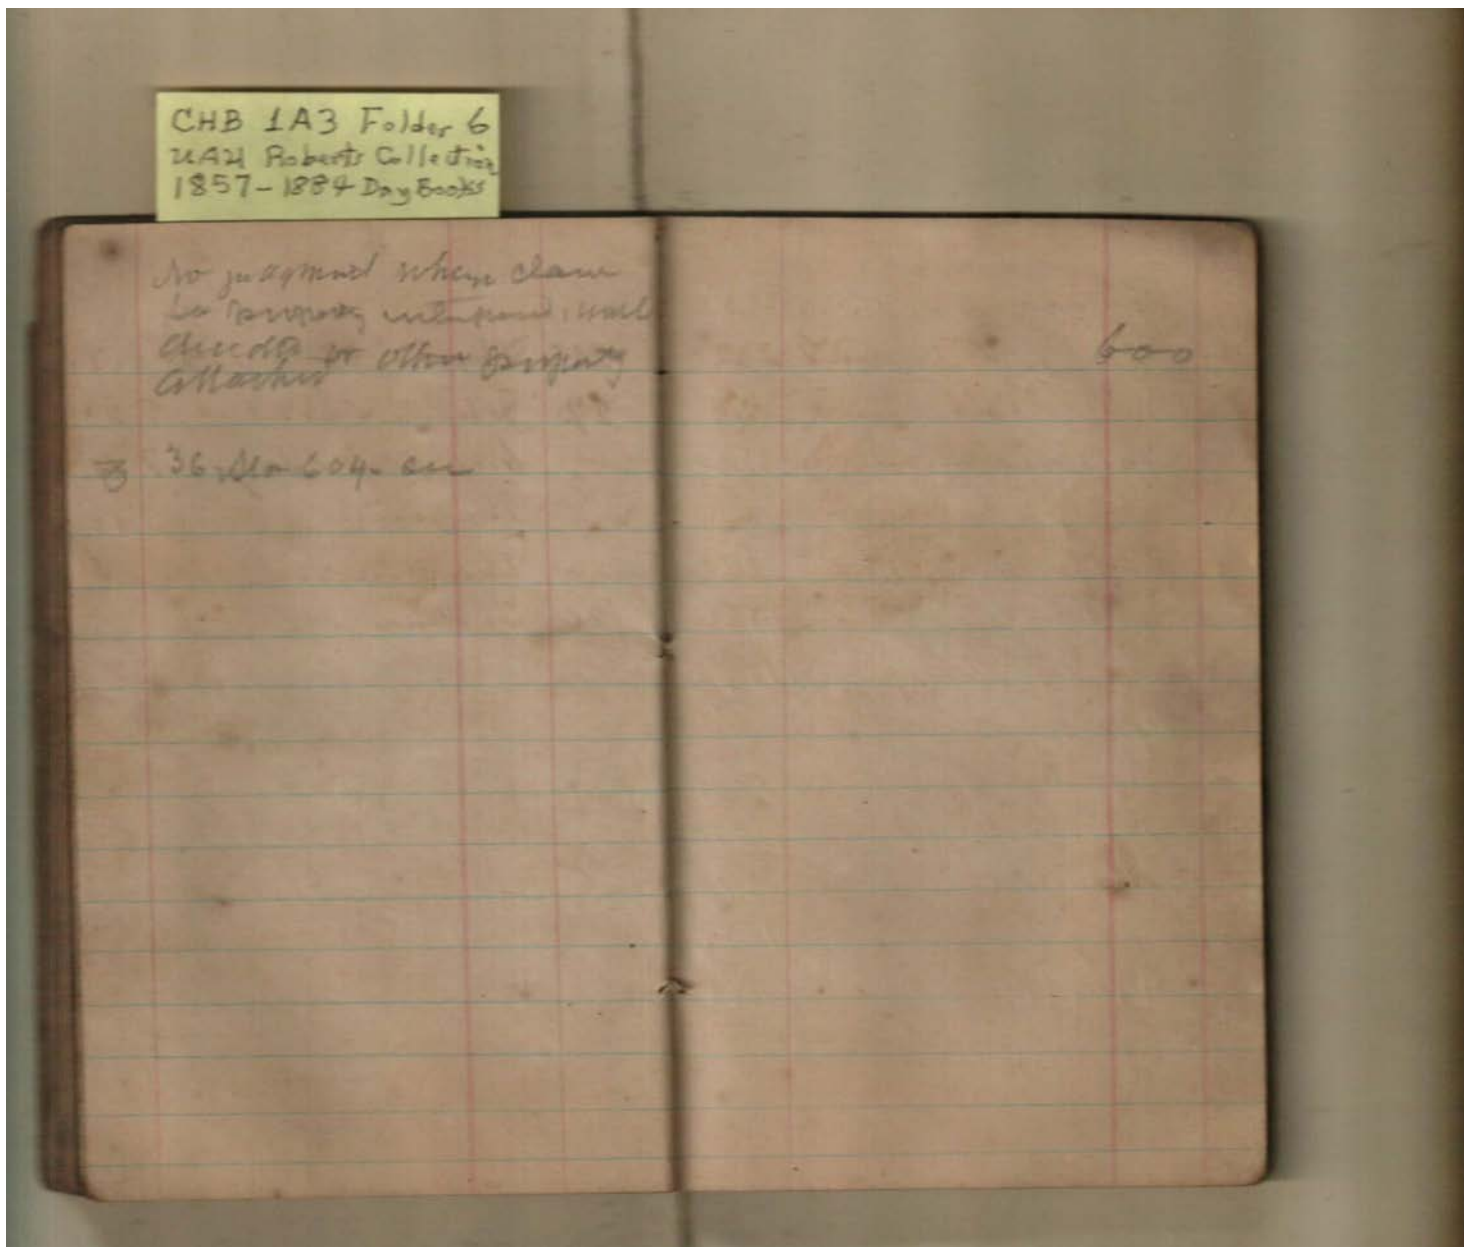 CHB 1A3 Folder 6
UAH Roberts Collection
1857-1884 Day Books
No judgment when claim
to property interposed, until
or other property
attached
36 Ala 604
600